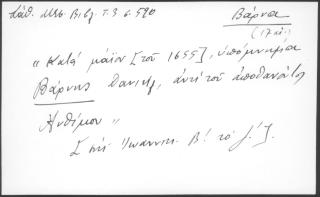 Σάθ. Μεσ. Βιβλ. τ. 3 σ. 590
Βάρνα
(17 αἰ.)
" Κατὰ μάϊον [τοῦ 1655], ὑπόμνημα
Βάρνης Δανιήλ, ἀντὶ τοῦ ἀποθανόντος
Ἀνθίμου "
[ ἐπὶ Ἰωαννικ. Β! τὸ